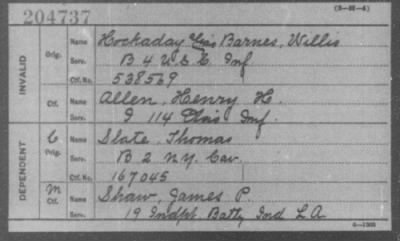 204737
(3—88—6)
INVALID
Orig. Name Hockaday alias Barnes, Willis
Serv. B 4 U.S.C. Inf
Ctf. No. 538569
Ctf. Name Allen, Henry H.
Serv. I 114 Inf.
DEPENDENT
C Orig. Name Slate, Thomas
Serv. B 2 N.Y. Cav.
Ctf. No. 167045
M Ctf. Name Shaw, James P.
Serv. 19 Indpt. Batty Ind L A
6—1308